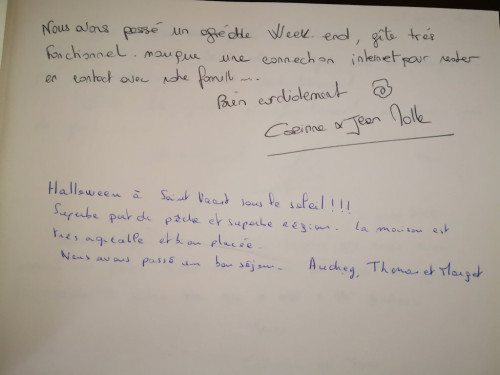 Nous avons passé un agréable Week-end, gîte très
Fonctionnel. manque une connection internet pour rester
en contact avec notre famille...
Bien cordialement
Corinne & Jean
Halloween à Saint Vaast sous le soleil!!!
Superbe port de pêche et superbe région. La maison est
très agréable et bien placée.
Nous avons passé un bon séjour. Audrey, Thomas et Margot